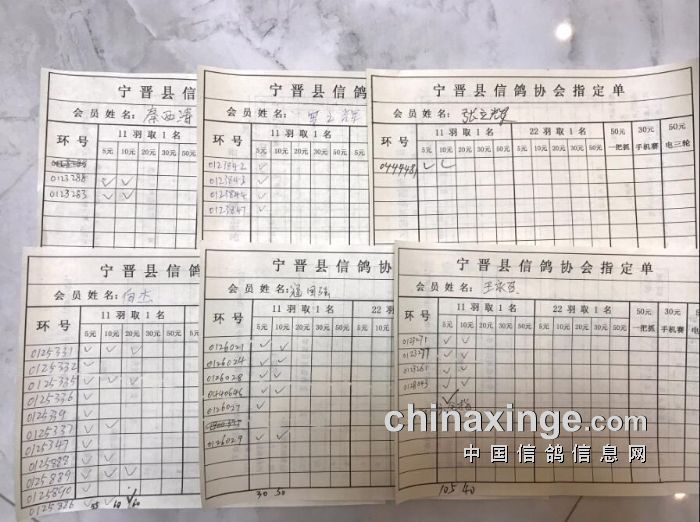 宁晋县信鸽
会员姓名:秦西涛
环号 11羽取1名
5元 10元 20元 30元 50元
0123288 ✓ ✓
0123283 ✓ ✓
宁晋县信鸽
会员姓名:
环号 11羽取1名
5元 10元 20元 30元 50元 5元
0123842 ✓
0123843 ✓
0123844 ✓
0123847 ✓
宁晋县信鸽协会指定单
会员姓名:张立辉
环号 11羽取1名 22羽取1名 50元 30元 50元
5元 10元 20元 30元 50元 5元 10元 20元 30元 50元 一把抓 手机赛 电三轮
✓ ✓
宁晋县信鸽
会员姓名:
环号 11羽取1名
5元 10元 20元 30元 50元
0125331 ✓ ✓ ✓
0125332 ✓
0125335 ✓ ✓ ✓
0125336 ✓
0125339 ✓
0125337 ✓ ✓
0125347 ✓
0125888 ✓ ✓
0125889 ✓ ✓ ✓
0125890 ✓
0125886
宁晋县信鸽协
会员姓名:
环号 11羽取1名 22羽
5元 10元 20元 30元 50元 5元 10元
0126021 ✓ ✓
0126024 ✓ ✓
0126028 ✓ ✓
0126027 ✓
0126029 ✓ ✓
30 50
宁晋县信鸽协会指定单
会员姓名:
环号 11羽取1名 22羽取1名 50元 30元 50元
5元 10元 20元 30元 50元 5元 10元 20元 30元 50元 一把抓 手机赛 电三轮
0123271 ✓ ✓
0123277 ✓ ✓
0123261 ✓ ✓
✓ ✓
105 40
chinaxinge.com
中国信鸽信息网